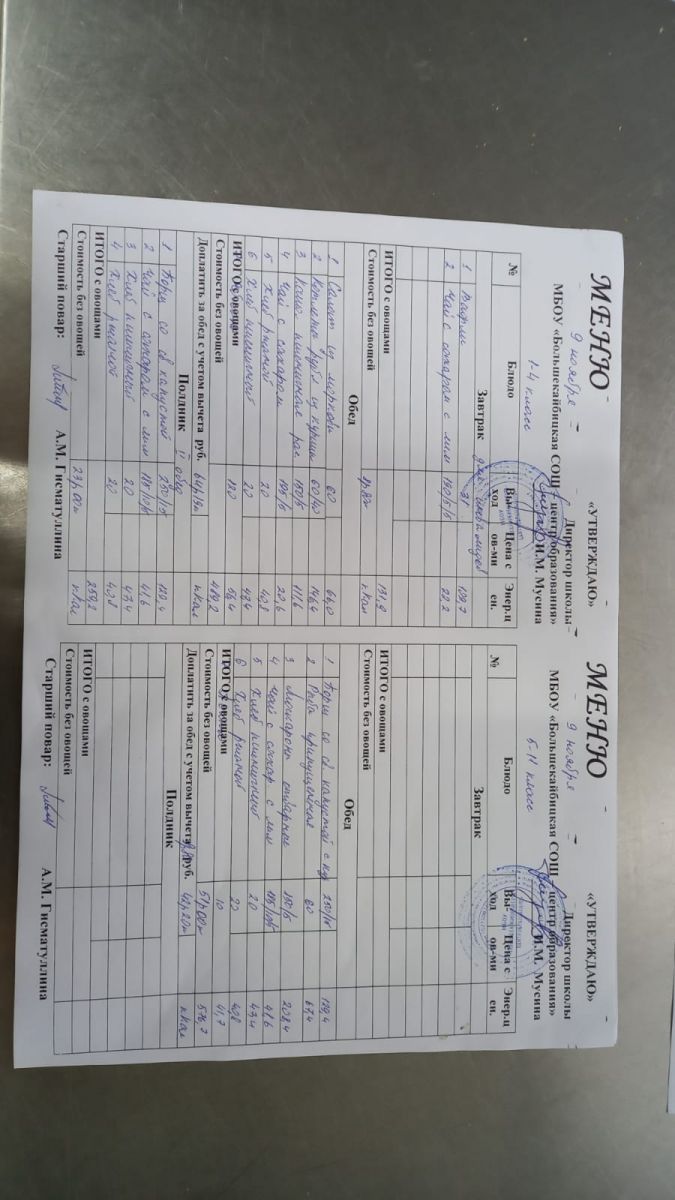 МЕНЮ
«УТВЕРЖДАЮ»
9 ноября
Директор школы
МБОУ «Большекайбицкая СОШ – центр образования»
1-4 класс
И.М. Мусина
№ Блюдо Вы-ход Цена с ов-ми Энер.ц ен.
Завтрак
1 Вафли 31 109,7
2 Чай с сахаром с лим 190/5/5 22,2
ИТОГО с овощами 131,9
Стоимость без овощей ккал
Обед
1 Салат из моркови 60 66,0
2 Котлеты руб из курицы 146,4
3 Каша пшеничная рас 150/5 111,6
4 Чай с сахаром 195/5 22,6
5 Хлеб ржаной 20 40,8
6 Хлеб пшеничный 20 47,4
ИТОГО с овощами 120 56,4
Стоимость без овощей 489,2
Доплатить за обед с учетом вычета руб. ккал
Полдник II обед
1 Борщ со св капустой 250/10 129,4
2 Чай с сахаром с лим 41,6
3 Хлеб пшеничный 20 47,4
4 Хлеб ржаной 20 40,8
ИТОГО с овощами 259,2
Стоимость без овощей 23р.00к ккал
Старший повар: А.М. Гисматуллина
МЕНЮ
«УТВЕРЖДАЮ»
9 ноября
Директор школы
МБОУ «Большекайбицкая СОШ – центр образования»
5-11 класс
И.М. Мусина
№ Блюдо Вы-ход Цена с ов-ми Энер.ц ен.
Завтрак
ИТОГО с овощами
Стоимость без овощей
Обед
1 Борщ со св капустой с кур 250/10 129,4
2 Рыба припущенная 80 67,4
3 Макароны отварные 150/5 208,4
4 Чай с сахар с лим 41,6
5 Хлеб пшеничный 20 47,4
6 Хлеб ржаной 20 40,8
ИТОГО с овощами 10 41,7
Стоимость без овощей 51р.00к 576,7
Доплатить за обед с учетом вычета руб. 42р20к ккал
Полдник
ИТОГО с овощами
Стоимость без овощей
Старший повар: А.М. Гисматуллина